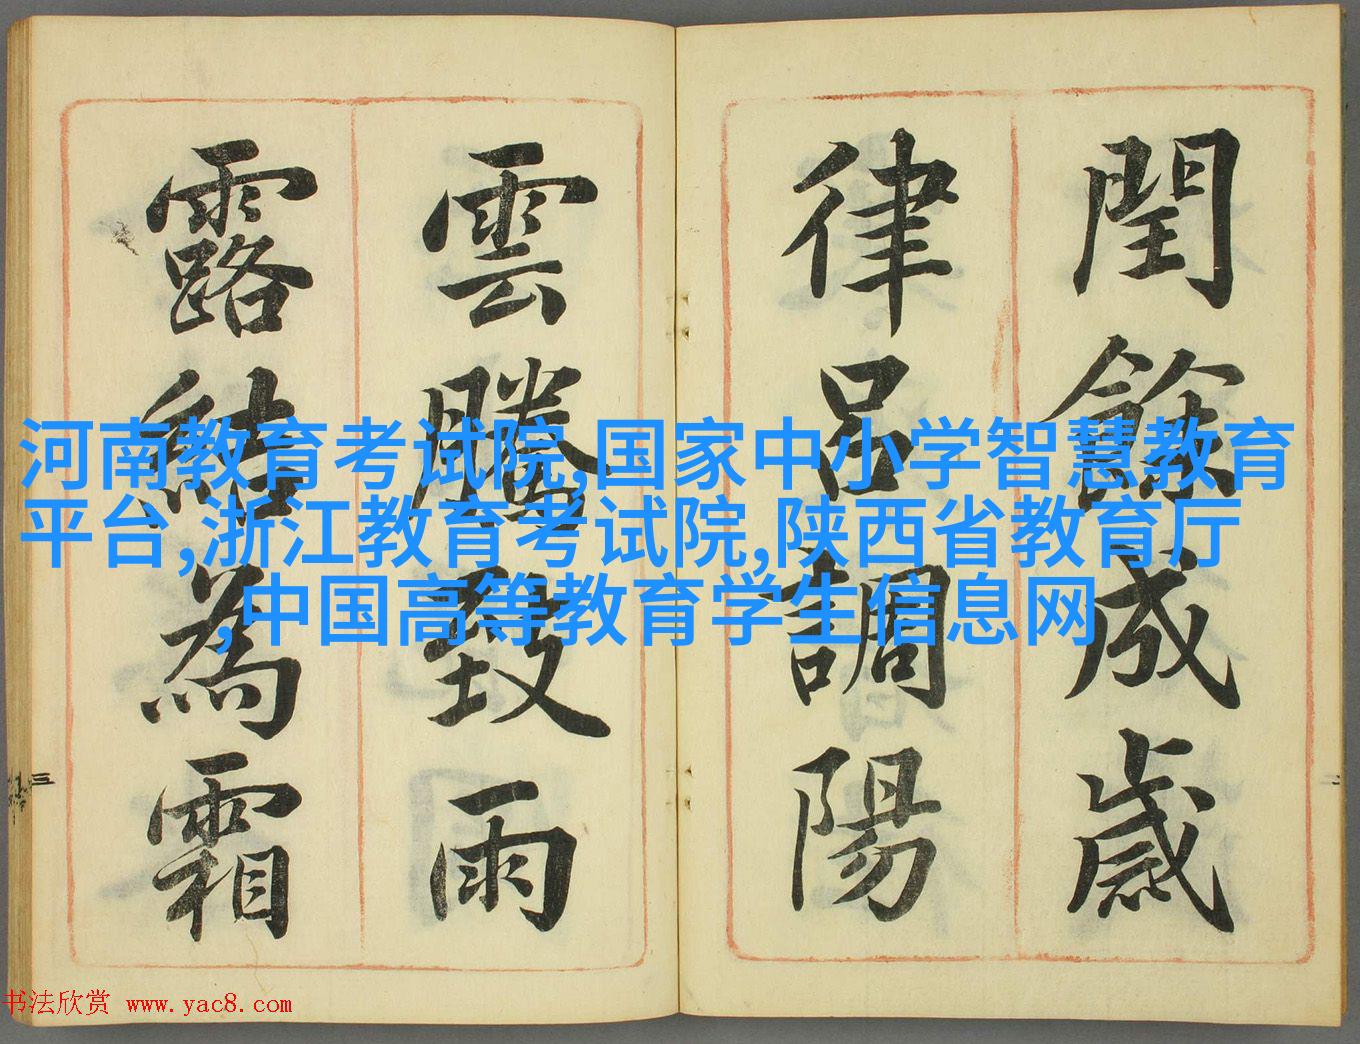 閏餘成歲
律呂調陽
雲騰致雨
露結為霜
河南教育考试院,国家中小学智慧教育
平台,浙江教育考试院,陕西省教育厅
,中国高等教育学生信息网
三
二
书法欣赏 www.yac8.com